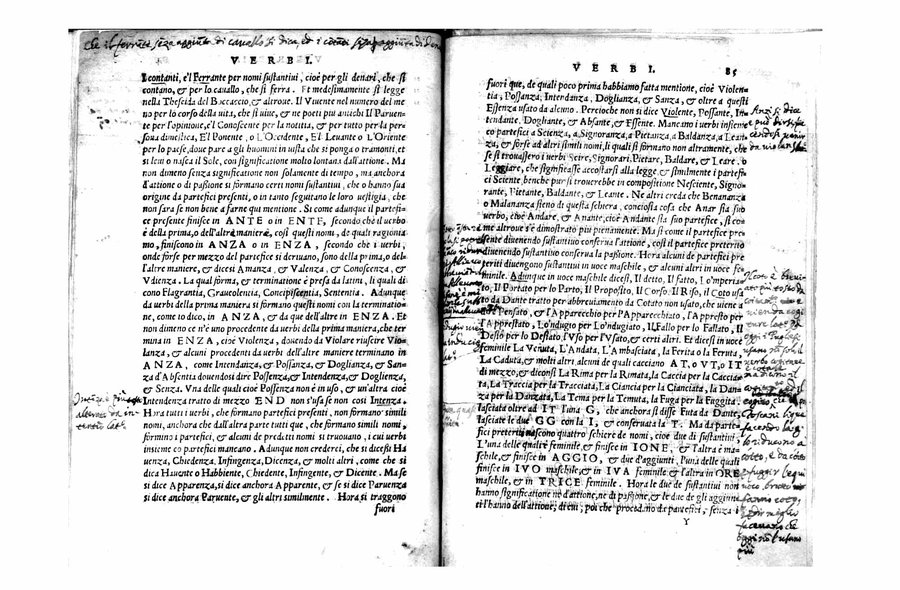 VERBI.
I contanti, e'l Ferrante per nomi sustantivi, cioè per gli denari, che si
contano, & per lo cavallo, che si ferra. Et medesimamente si legge
nella Theseida del Boccaccio, & altroue. Il Vivente nel numero del me
no per lo corso della vita, che si vive, & ne poeti piu antichi Il Paruen-
te per l'opinione, e'l Conoscente per la notitia, & per tutto per la per-
sona dimestica, E'l Ponente, o L'Occidente, Et Leuante o L'Oriente
per lo paese, doue pare a gli huomini in uista che si ponga o tramonti, et
si leui o nasca il Sole, con significatione molto lontana dall'attione. Ma
non dimeno senza significatione non solamente di tempo, ma anchora
d'attione o di passione si formano certi nomi sustantiui, che o hanno sua
origine da partefici presenti, o in tanto seguitano le loro uestigia, che
non sara se non bene a farne qui mentione. Si come adunque il partefi-
ce presente finisce in ANTE o in ENTE, secondo che il uerbo
è della prima, o dell'altre maniere, così questi nomi, de quali ragionia
mo, finiscono in ANZA o in ENZA, secondo che i uerbi,
onde forse per mezzo del partefice si deriuano, sono della prima, o del-
l'altre maniere, & dicesi Amanza, & Valenza, & Conoscenza, &
Vdienza. La qual forma, & terminatione è presa da latini, li quali di
cono Flagrantia, Graueolentia, Concipiscentia, Sententia. Adunque
da uerbi della prima maniera si formano questi nomi con la terminatio-
ne, come io dico, in ANZA, & da que dell'altre in ENZA. Et
non dimeno ce n'è uno procedente da uerbo della prima maniera, che ter
mina in ENZA, cioè Violenza, douendo da Violare riuscire Vio-
lanza, & alcuni procedenti da uerbi dell'altre maniere terminano in
ANZA, come Intendanza, & Possanza, & Doglianza, & San-
za d'Absentia douendosi dire Possenza, & Intendenza, & Doglienza,
& Senza. Vna delle quali cioè Possenza non è in uso, & un'altra cioè
Intendenza tratto di mezzo END non s'usa se non cosi Intenza.
Hora tutti i uerbi, che formano partefici presenti, non formano simili
nomi, anchora che dall'altra parte tutti que, che formano simili nomi,
formino i partefici, & alcuni de predetti nomi si truouano, i cui uerbi
insieme co partefici mancano. Adunque non crederei, che si dicesse Ha
uenza, Chiedenza, Infingenza, Dicenza, & molti altri, come che si
dica Hauente o Habbiente, Chiedente, Infingente, & Dicente. Ma se
si dice Apparenza, si dice anchora Apparente, & se si dice Paruenza
si dice anchora Paruente, & gli altri similmente. Hora, si traggono
fuori
VERBI. 85
fuori que, de quali poco prima habbiamo fatta mentione, cioè Violen-
tia, Possanza, Intendanza, Doglianza, & Sanza, & oltre a questi
Essenza usato da alcuno. Percioche non si dice Violente, Possante, In-
tendante, Dogliante, & Absante, & Essente. Mancano i uerbi insieme
co partefici a Scienza, a Signoranza, a Pietanza, a Baldanza, a Lean-
za, & forse ad altri simili nomi, li quali si formano non altramente, che
se si trouassero i uerbi Scire, Signorare, Pietare, Baldare, & Leare, o
Leggiare, che significasse accostarsi alla legge & similmente i partefi-
ci Sciente, benche pur si trouerebbe in compositione Nesciente, Signo-
rante, Pietante, Baldante, & Leante. Ne altri creda che Benananza
o Malananza sieno di questa schiera, conciosia cosa che Anar sia suo
uerbo, cioè Andare, & Anante, cioè Andante sia suo partefice, si co-
me altroue s'è dimostrato piu pienamente. Ma si come il partefice pre-
sente diuenendo sustantiuo conserua l'attione, così il partefice preterito
diuenendo sustantiuo conserua la passione. Hora alcuni de partefici pre
teriti diuengono sustantiui in uoce maschile, & alcuni altri in uoce fe-
minile. Adunque in uoce maschile dicesi, Il detto, Il fatto, L'impera-
to, Il Portato per lo Parto, Il Proposito, Il Corso, Il Riso, il Coto usa
to da Dante tratto per abbreuiamento da Cotato non usato, che uiene a
dire Pensato, & l'Apparecchio per l'Apparecchiato, l'Appresto per
l'Apprestato, Lo'ndugio per Lo'ndugiato, Il Fallo per Lo Fallato, Il
Desio per lo Desiato, l'Vso per l'Vsato, & certi altri. Et dicesi in uoce
feminile La Venuta, L'Andata, L'Ambasciata, la Ferita o la Feruta,
La Caduta, & molti altri, alcuni de quali cacciano AT, o VT, o IT
di mezzo, & diconsi La Rima per la Rimata, La Caccia per la Caccia-
ta, La Traccia per la Tracciata, La Ciancia per la Cianciata, La Dan-
za per la Danzata, La Tema per la Temuta, la Fuga per la Fuggita,
lasciata oltre ad IT l'una G, che anchora si disse Futa da Dante,
lasciate le due GG con la I, & conseruata la T. Ma da parte-
fici preteriti nascono quattro schiere de nomi, cioè due di sustantiui,
L'una delle quali è feminile & finisce in IONE, & l'altra è ma-
schile, & finisce in AGGIO, & due d'aggiunti, l'una delle quali
finisce in IVO maschile, & in IVA feminile & l'altra in ORE
maschile, & in TRICE feminile. Hora le due de sustantiui non
hanno significatione ne d'attione, ne di passione, & le due de gli aggiun
ti l'hanno dell'attione, di cui, poi che procedano da partefici, senza i
Y